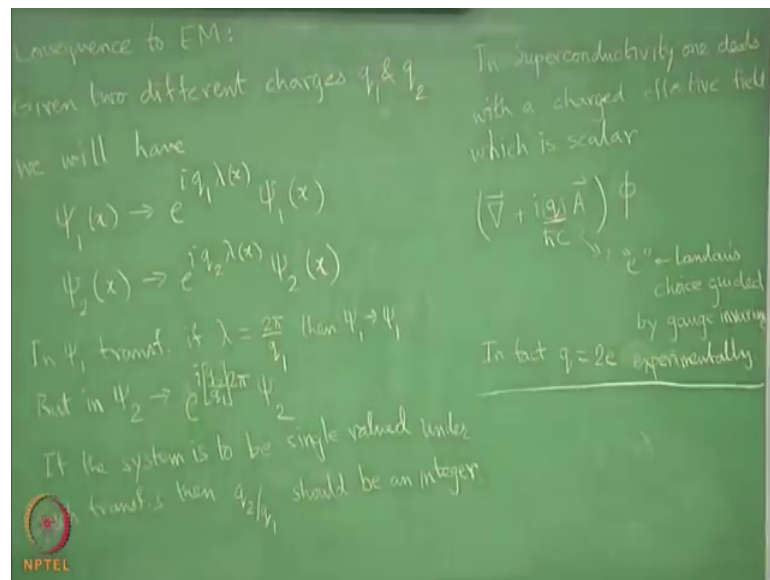 Consequence to EM:
Given two different charges q₁ & q₂
we will have
Ψ₁(x) → e^{iq₁λ(x)} Ψ₁(x)
Ψ₂(x) → e^{iq₂λ(x)} Ψ₂(x)
In Ψ₁ transf. if λ = 2π/q₁ then Ψ₁→Ψ₁
But in Ψ₂ → e^{i[q₂/q₁]2π} Ψ₂
If the system is to be single valued under
transf.s then q₂/q₁ should be an integer.
In Superconductivity one deals
with a charged effective field
which is scalar
(∇⃗ + i(q)/ħc A⃗) ϕ
"e" – Landau's
choice guided
by gauge
In fact q = 2e experimentally.
NPTEL